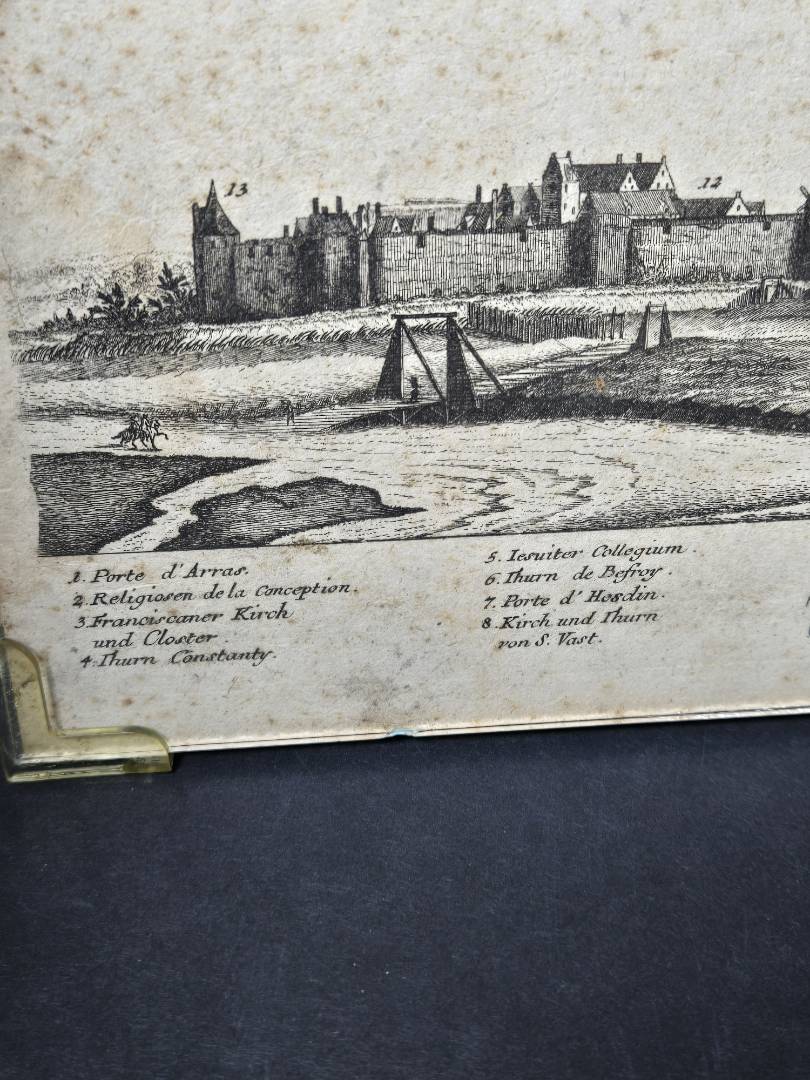 13
12
1. Porte d'Arras.
2. Religiosen de la Conception.
3. Franciscaner Kirch
und Closter.
4. Thurn Constanty.
5. Iesuiter Collegium.
6. Thurn de Befroy.
7. Porte d'Hesdin.
8. Kirch und Thurn
von S. Vast.